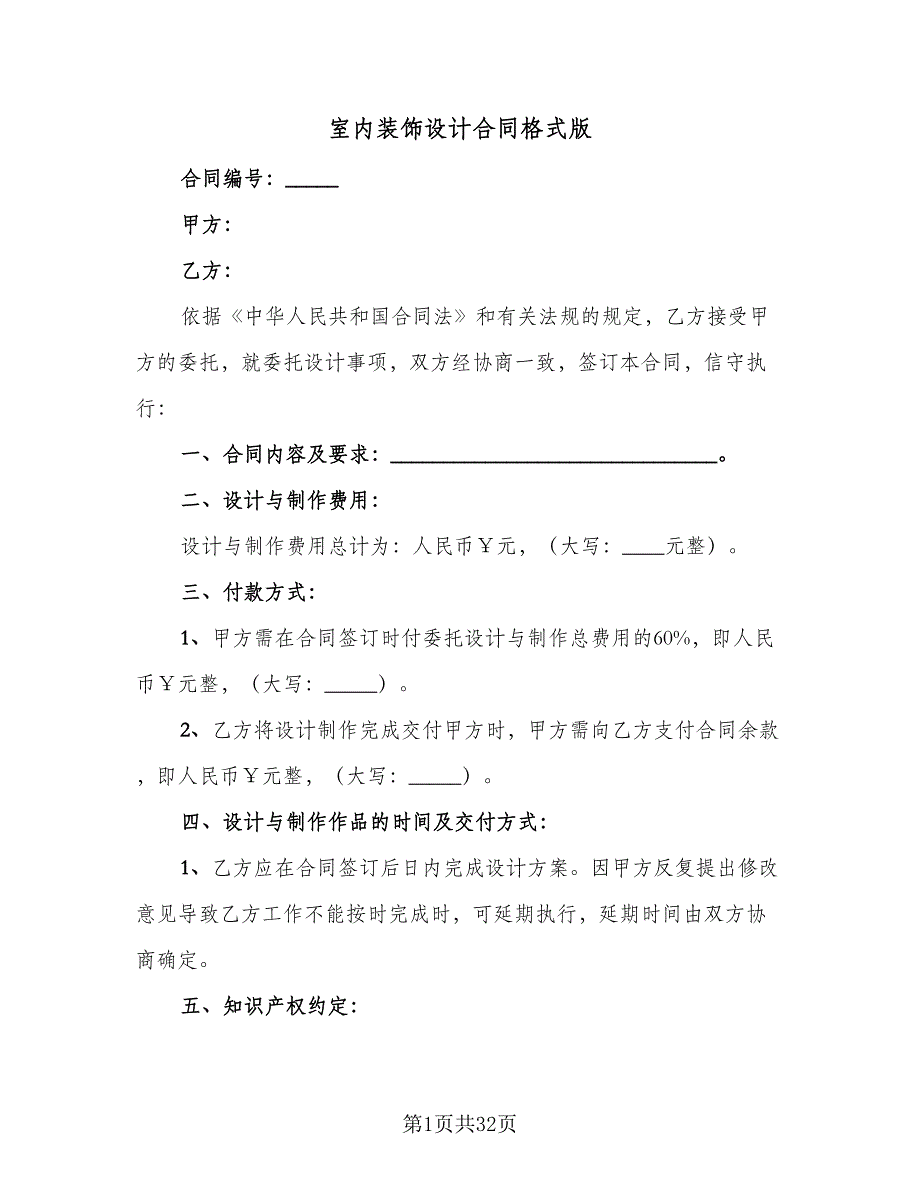 室内装饰设计合同格式版
合同编号：_____
甲方：
乙方：
依据《中华人民共和国合同法》和有关法规的规定，乙方接受甲
方的委托，就委托设计事项，双方经协商一致，签订本合同，信守执
行：
一、合同内容及要求：_______________________________。
二、设计与制作费用：
设计与制作费用总计为：人民币￥元，（大写：____元整）。
三、付款方式：
1、甲方需在合同签订时付委托设计与制作总费用的60%，即人民
币￥元整，（大写：_____）。
2、乙方将设计制作完成交付甲方时，甲方需向乙方支付合同余款
，即人民币￥元整，（大写：_____）。
四、设计与制作作品的时间及交付方式：
1、乙方应在合同签订后日内完成设计方案。因甲方反复提出修改
意见导致乙方工作不能按时完成时，可延期执行，延期时间由双方协
商确定。
五、知识产权约定：
第1页共32页